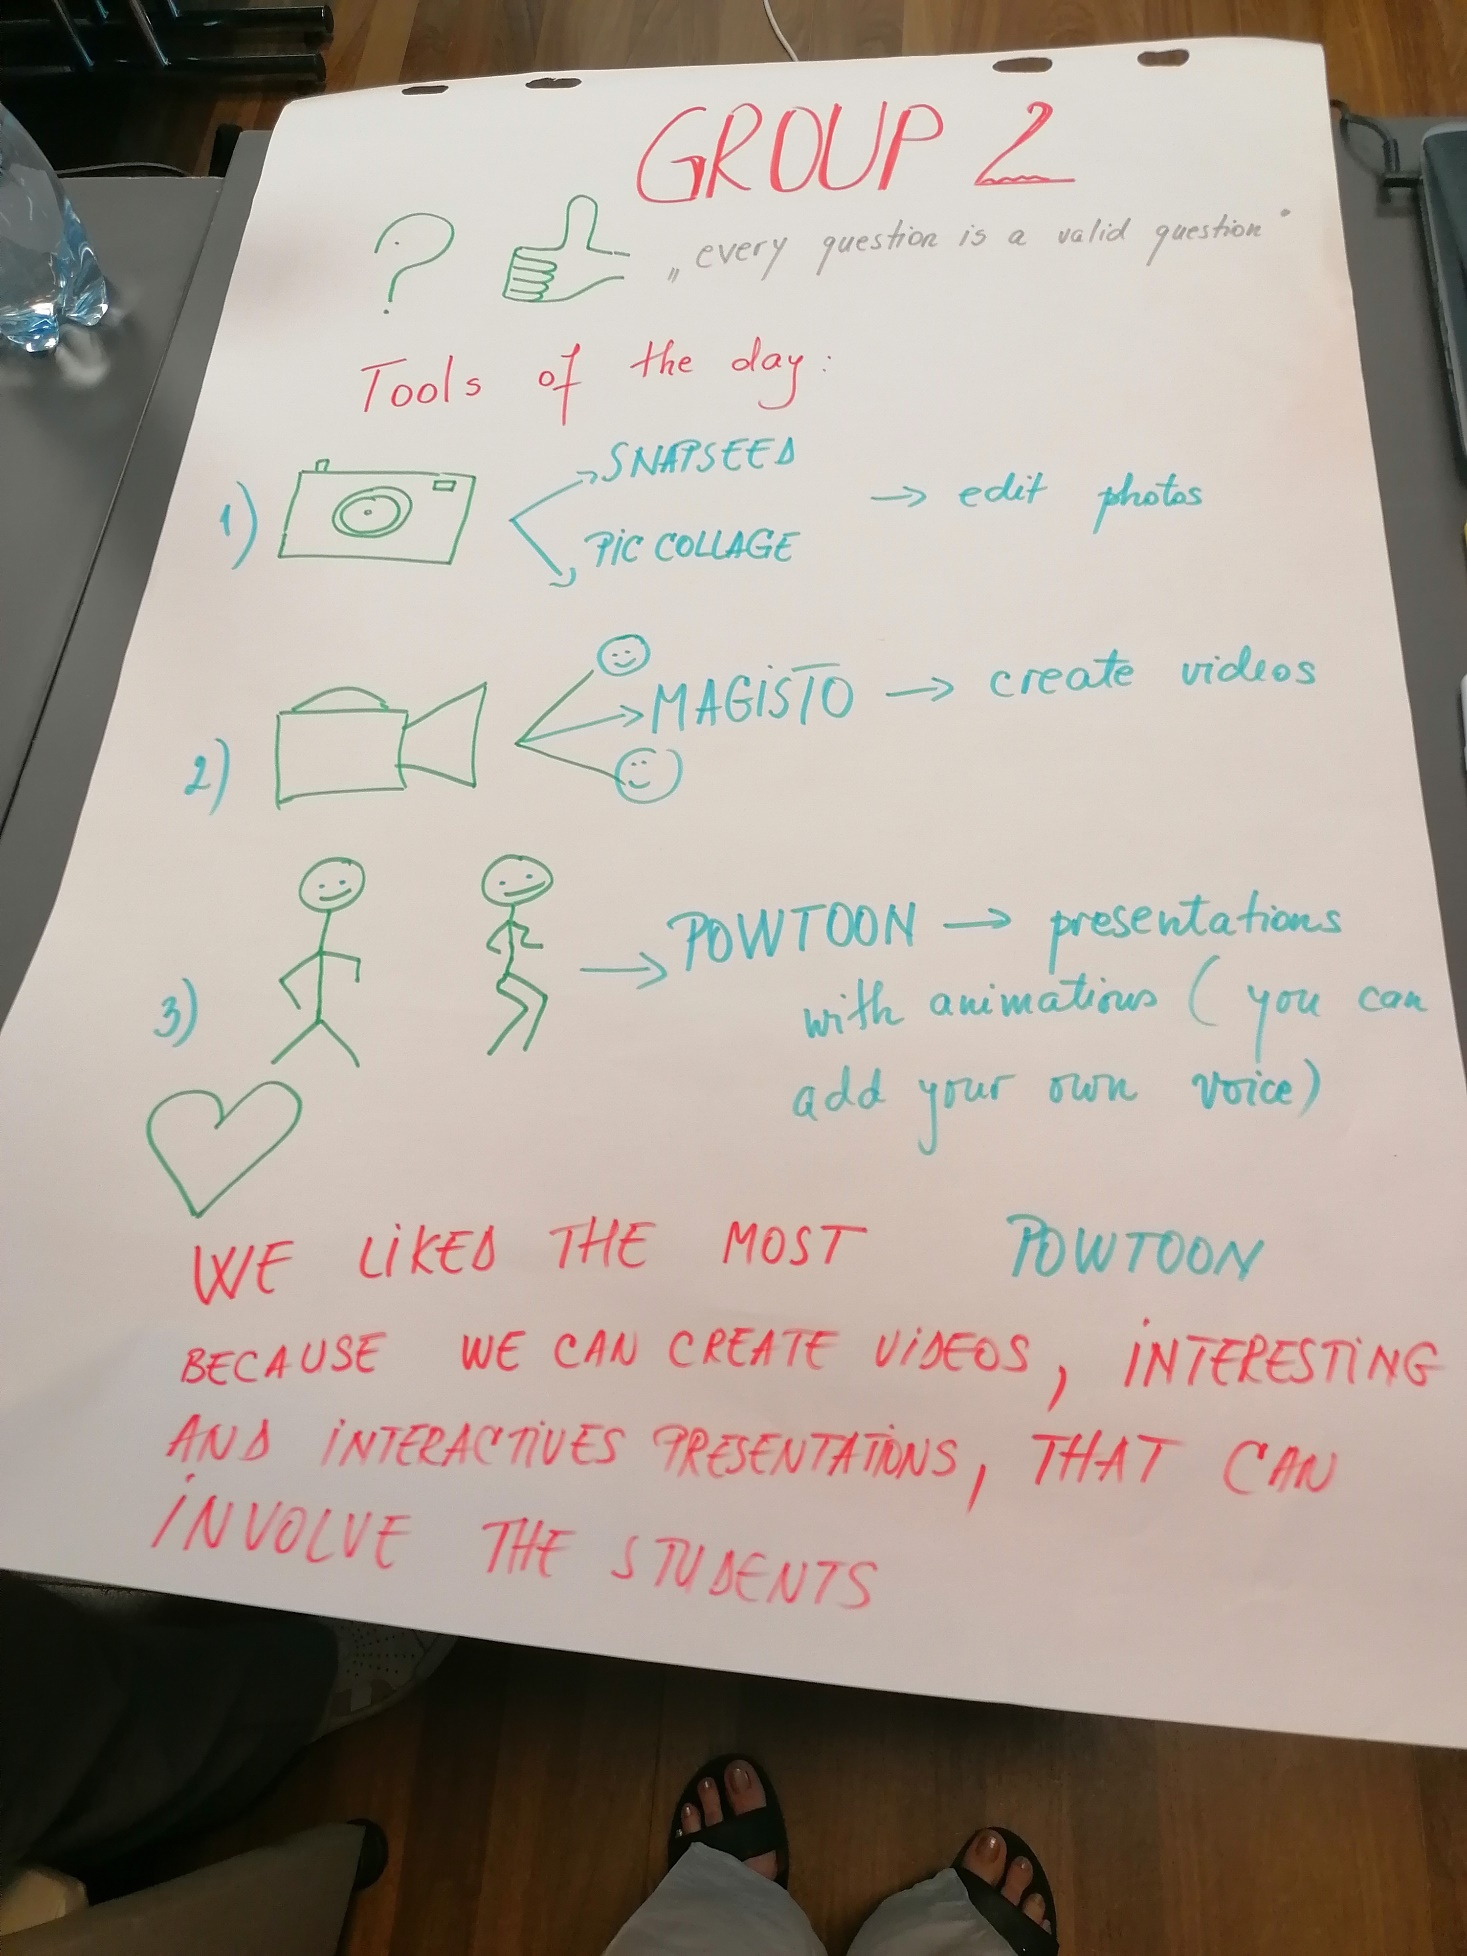 GROUP 2
? „every question is a valid question"
Tools of the day:
1) SNAPSEED
PIC COLLAGE → edit photos
2) MAGISTO → create videos
3) → POWTOON → presentations
with animations (you can
add your own voice)
WE LIKED THE MOST POWTOON
BECAUSE WE CAN CREATE VIDEOS, INTERESTING
AND INTERACTIVES PRESENTATIONS, THAT CAN
INVOLVE THE STUDENTS